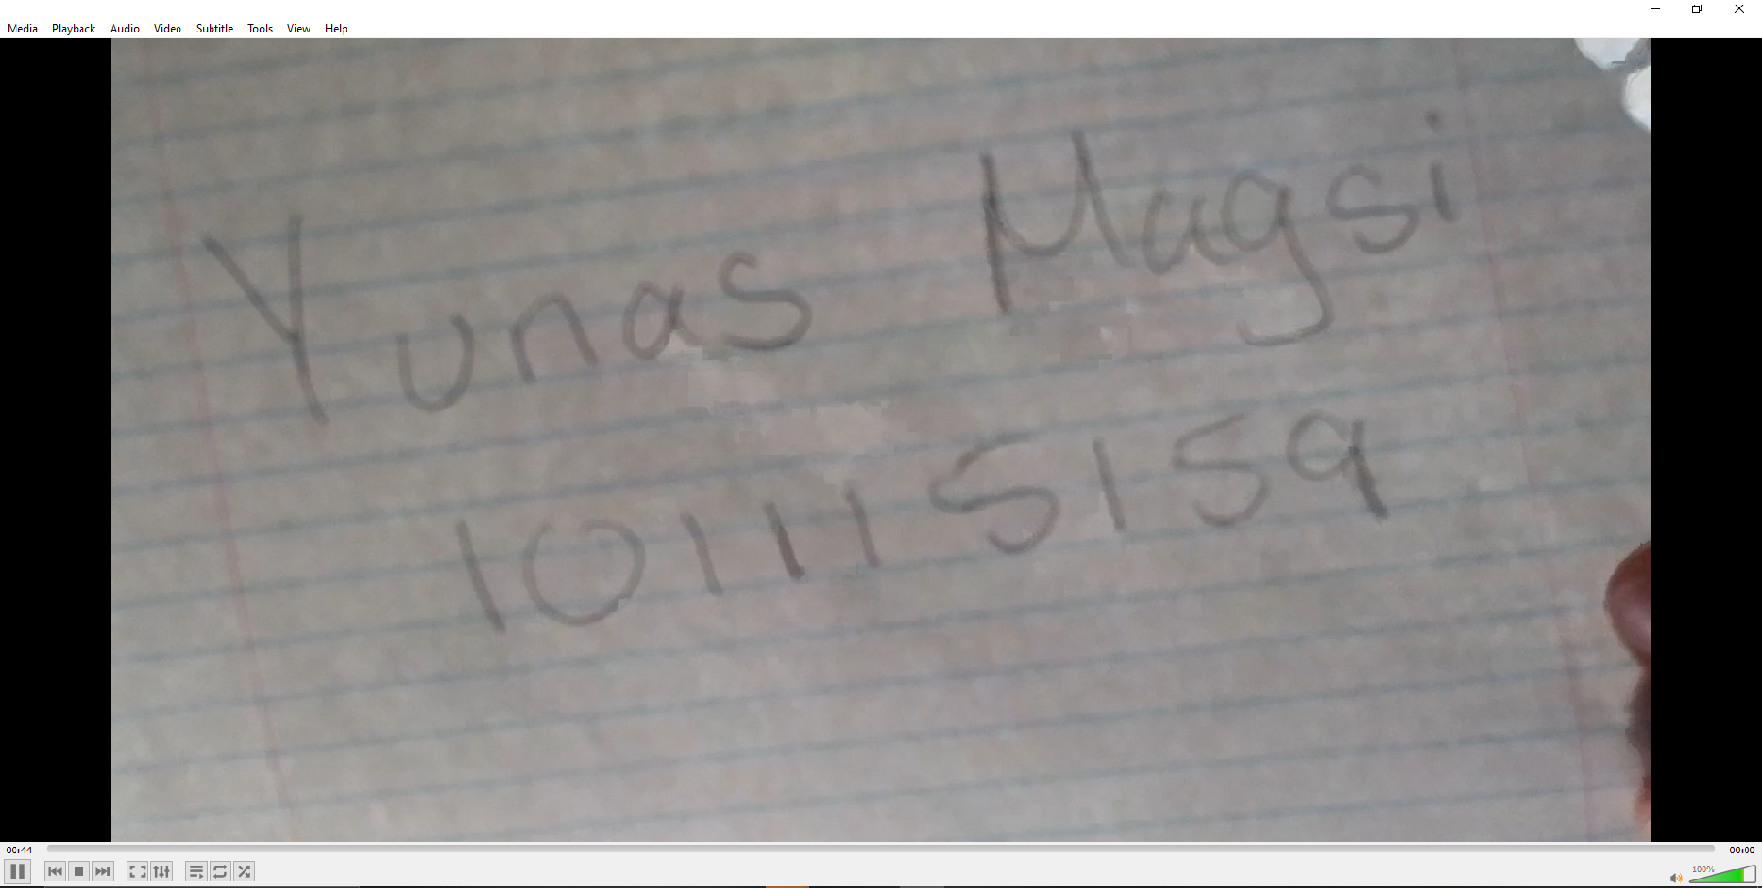 Media Playback Audio Video Subtitle Tools View Help
Yunas Magsi
101115159
00:44 00:00
100%